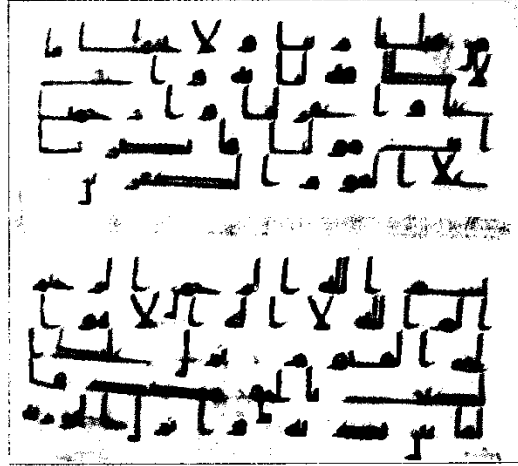 من قبلنا ربنا ولا تحملنا ما
لا طاقه لنا به واعف
عنا واغفر لنا وارحمنا
انت مولنا فانصرنا
على القوم الكفرين
بسم الله الرحمن الرحيم
الم الله لا اله الا هو ا
لحى القيوم نزل عليك ا
لكتب بالحق مصدقا
لما بين يديه وانزل التوريه